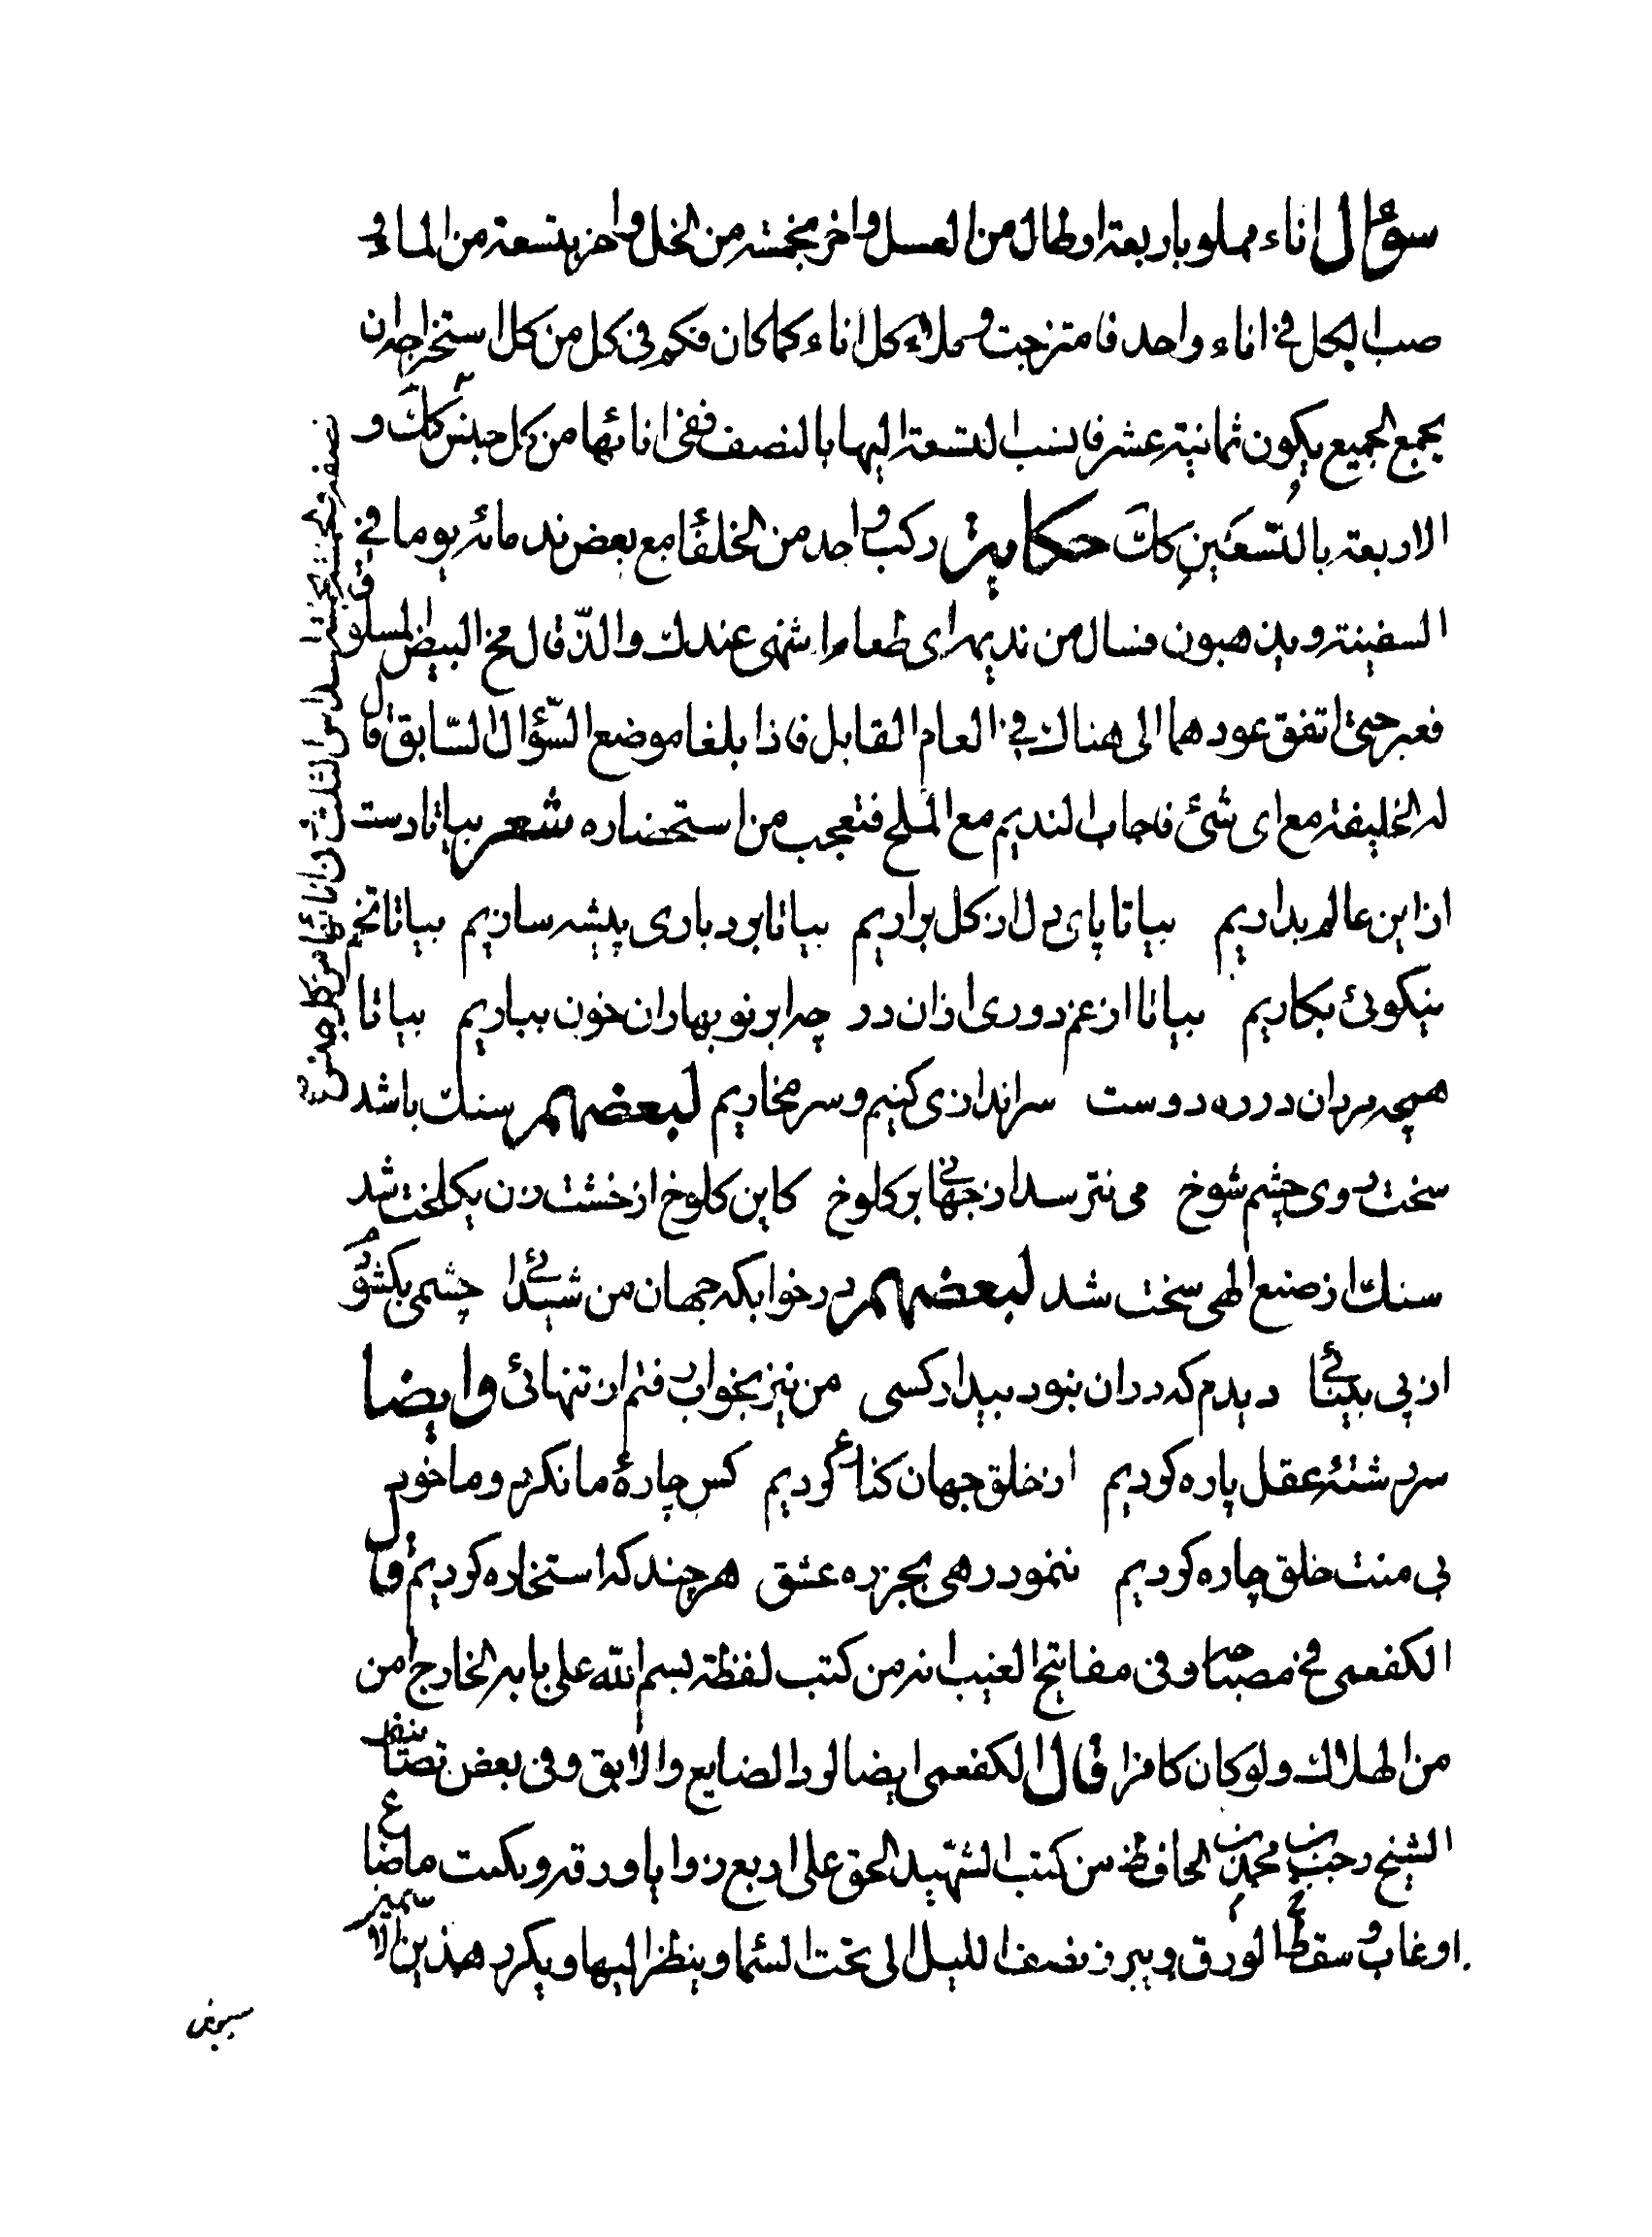 سؤال اناء مملو باربعة ارطال من العسل واخر بخمسة من الخل واخر بتسعة من الماء و
صب الكل في اناء واحد فامتزجت و ملاء كل اناء كما كان فكم في كل من كل استخراجه ان
يجمع الجميع يكون ثمانية عشر فانسب التسعة اليها بالنصف ففي انائها من كل جنس كك و
الاربعة بالتسعين كك حكاية ركب واحد من الخلفا مع بعض ندمائه يوما في
السفينة ويذهبون فسال من نديمه اى طعام اشهى عندك والذ قال مخ البيض المسلوق
فعبر حتى اتفق عودهما الى هناك في العام القابل فاذا بلغا موضع السّؤال السّابق قال
له الخليفة مع اى شئ فاجاب النديم مع الملح فتعجب من استحضاره شعر بيا تا دست
ازاين عالم بداريم بيا تا پاى دل از كل براريم بيا تا بردبارى پيشه سازيم بيا تا تخم
نيكوئ بكاريم بيا تا از غم دورى ازان در چه ابر نوبهاران خون بباريم بيا تا
همچه مردان در ره دوست سراندازى كنيم و سر نخاريم لبعضهم سنك باشد
سخت روى چشم شوخ مى نترسد از جهانى بر كلوخ كاين كلوخ از خشت زن يكلخت شد
سنك از صنع الهى سخت شد لبعضهم در خوابكه جهان من شيدائى چشمى بكشودم
از پى بينائى ديدم كه دران نبود بيدار كسى من نيز بخواب رفتم از تنهائى وايضا
سر رشتهٔ عقل پاره كرديم از خلق جهان كناره كرديم كس چارهٔ ما نكرد و ما خود
بى منت خلق چاره كرديم ننمود رهى بجز ره عشق هر چند كه استخاره كرديم قال
الكفعمى في مصباحه وفى مفاتيح الغيب انه من كتب لفظة بسم الله على بابه الخارج امن
من الهلاك ولو كان كافرا قال الكفعمى ايضا لرد الضايع والابق وفى بعض تصانيف
الشيخ رجب بن محمد بن الحافظ من كتب الشهيد الحق على اربع زوايا ورقه ويكتب ما ضاع
او غاب وسط الورق ويبرز نصف الليل الى تحت السماء وينظر اليها ويكرر هذين الاسمين
سبعين